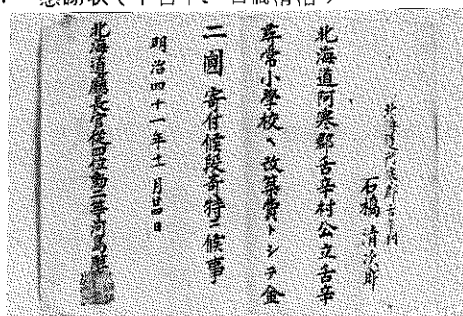 感謝状
北海道阿寒郡舌辛村
石橋清次郎
北海道阿寒郡舌辛村公立舌辛
尋常小學校ヘ改築費トシテ金
二圓寄付候段奇特ニ候事
明治四十一年十一月廿四日
北海道廳長官従四位勲二等河島醇